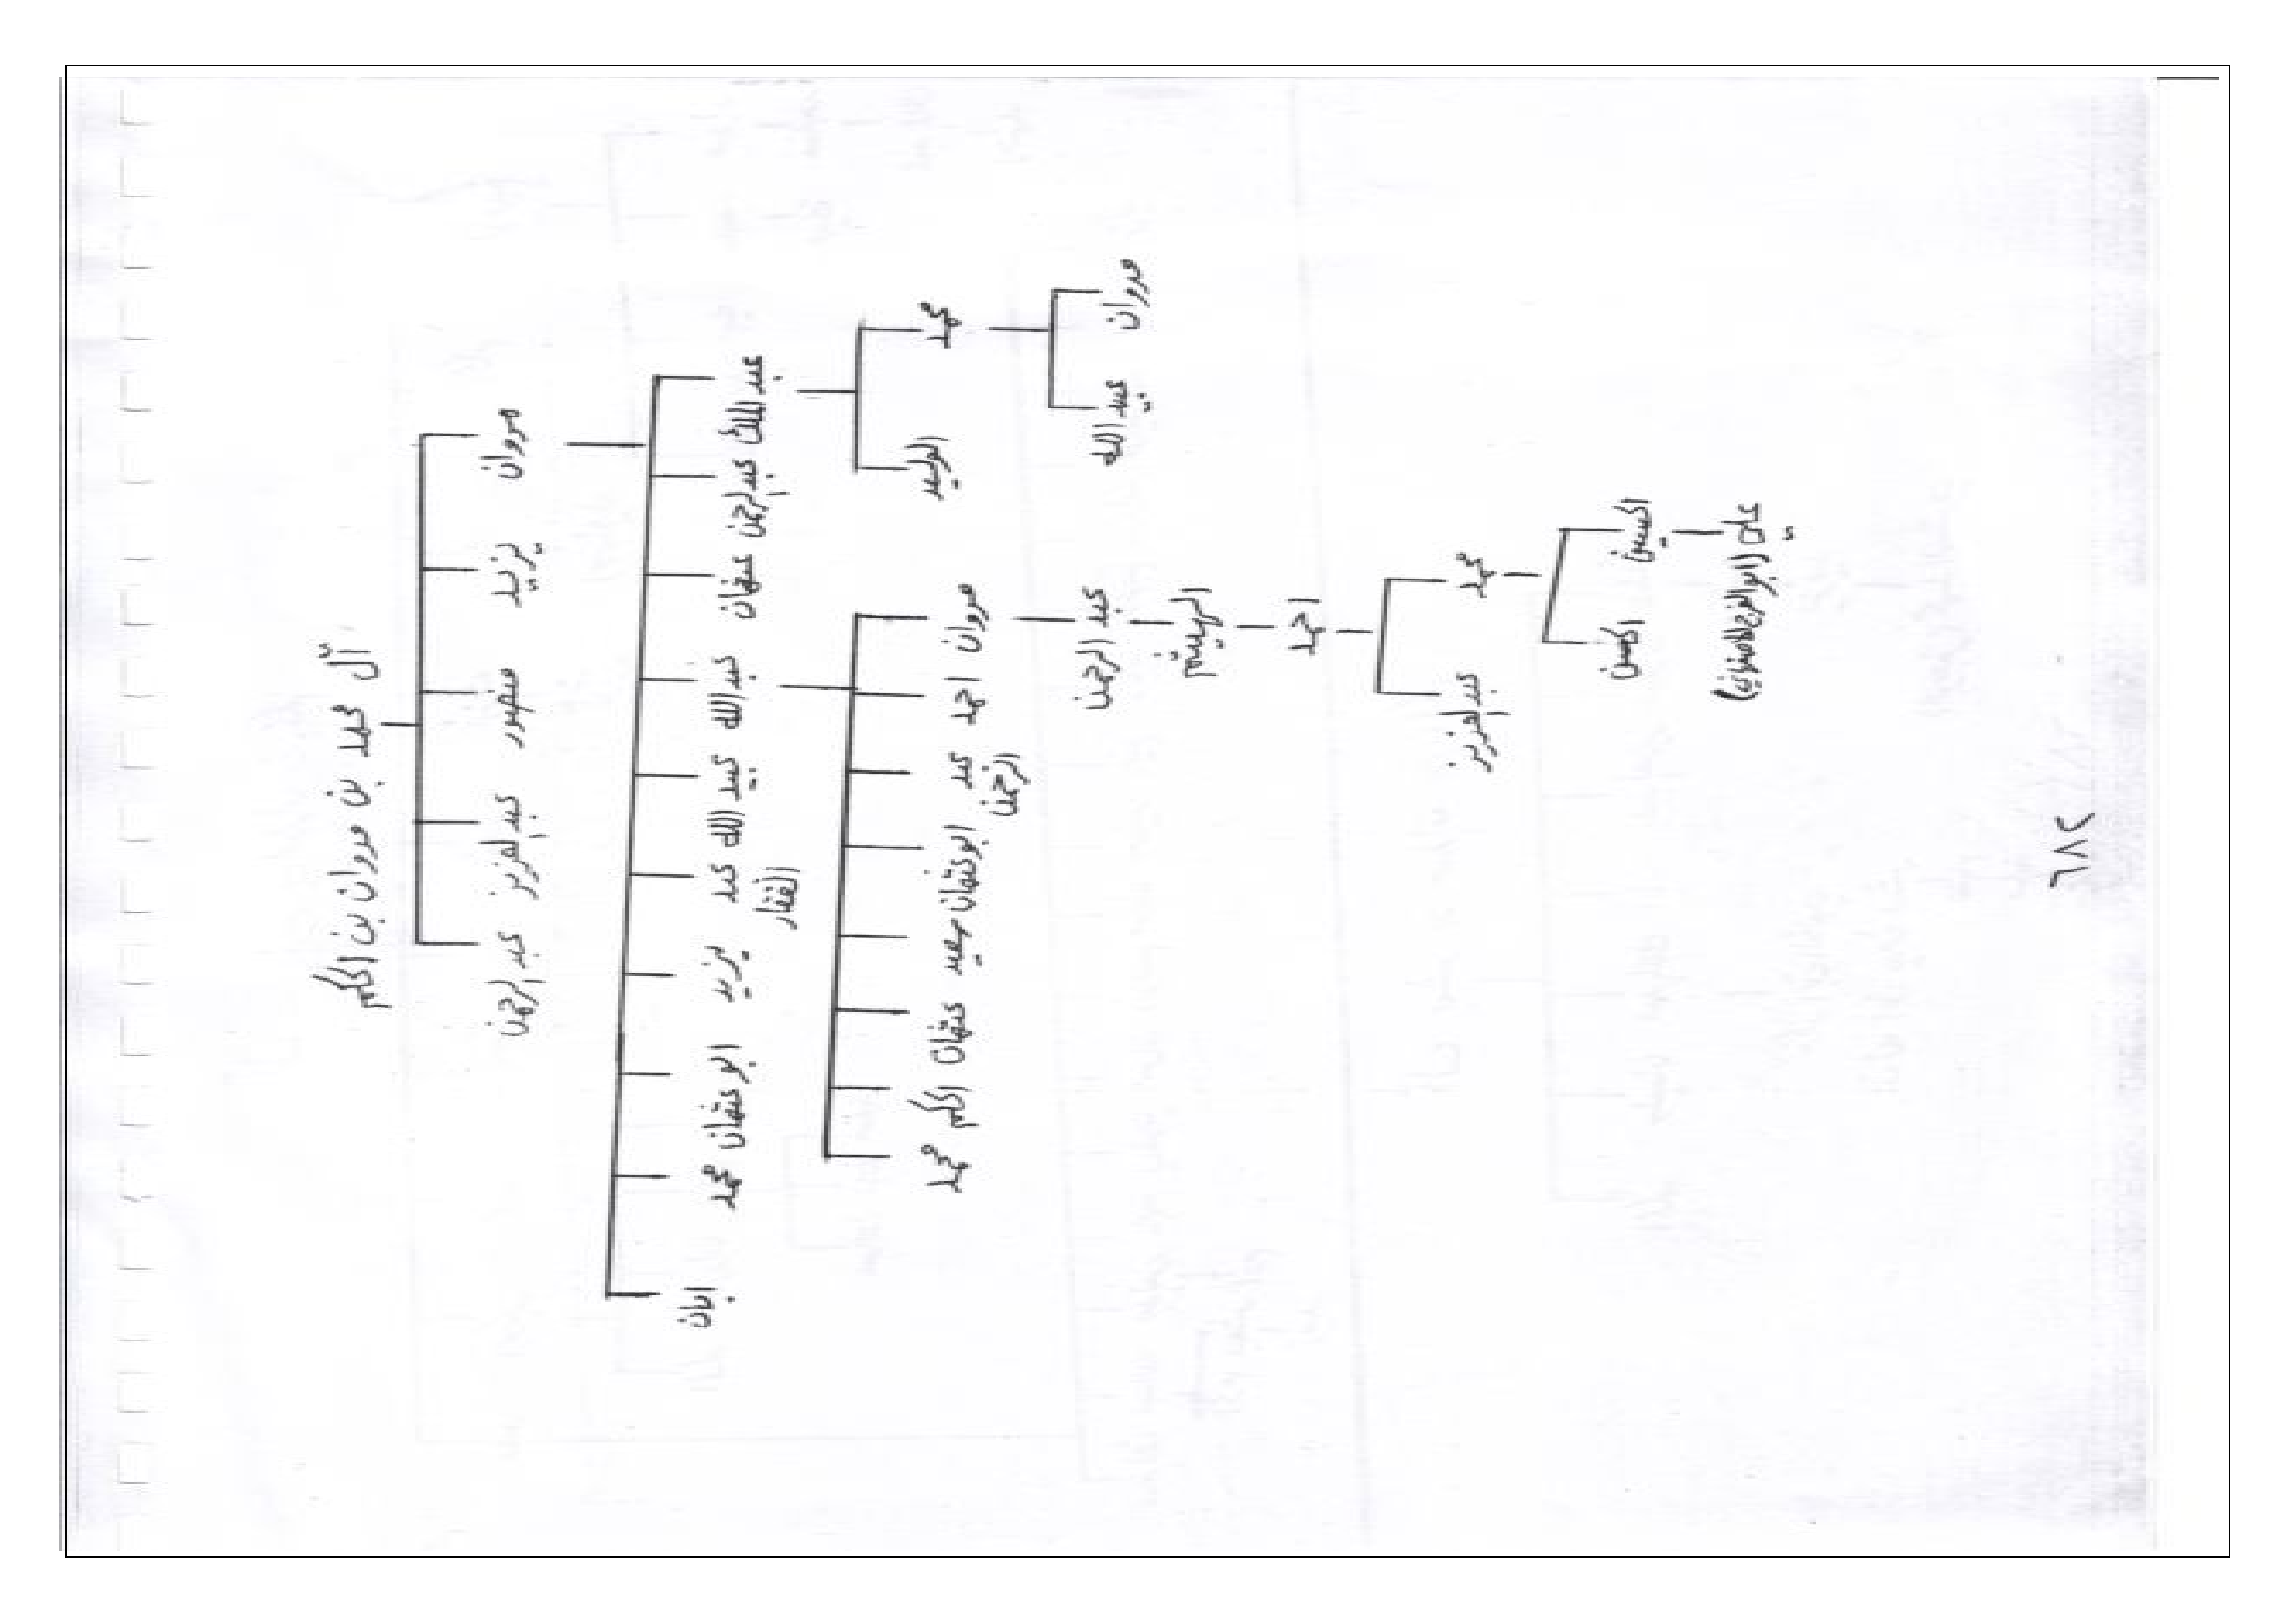 آل محمد بن مروان بن الحكم
مروان يزيد منصور عبد العزيز عبد الرحمن
عبد الملك عبد الرحمن عثمان عبد الله عبيد الله عبد الغفار يزيد ابو عثمان محمد ابان
محمد الوليد
مروان احمد عبد الرحمن ابو عثمان سعيد عثمان الحكم محمد
مروان عبيد الله
عبد الرحمن
الهيثم
احمد
محمد عبد العزيز
الحسين الحسن
علي (ابو الفرج الاصفهاني)